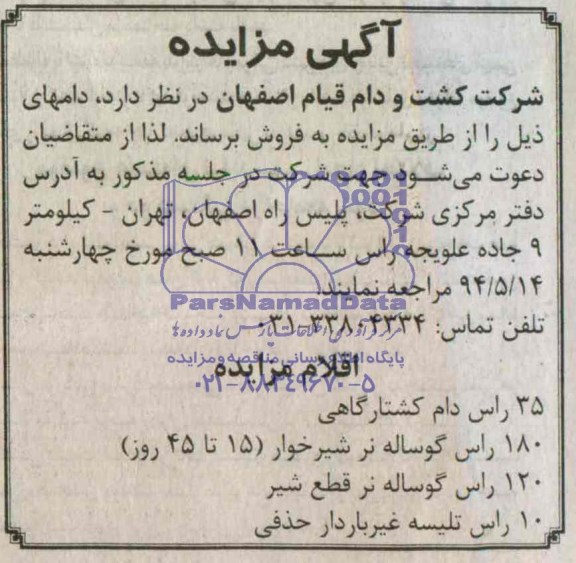 آگهی مزایده
شرکت کشت و دام قیام اصفهان در نظر دارد، دامهای
ذیل را از طریق مزایده به فروش برساند. لذا از متقاضیان
دعوت می‌شود جهت شرکت در جلسه مذکور به آدرس
دفتر مرکزی شرکت، پلیس راه اصفهان، تهران - کیلومتر
۹ جاده علویجه راس ساعت ۱۱ صبح مورخ چهارشنبه
۹۴/۵/۱۴ مراجعه نمایند.
ParsNamadData
تلفن تماس: ۳۳۸۰۴۳۳۴-۰۳۱
پایگاه اطلاع رسانی مناقصه و مزایده
اقلام مزایده
۰۲۱-۸۸۳۴۹۶۷۰-۵
۳۵ راس دام کشتارگاهی
۱۸۰ راس گوساله نر شیرخوار (۱۵ تا ۴۵ روز)
۱۲۰ راس گوساله نر قطع شیر
۱۰ راس تلیسه غیرباردار حذفی